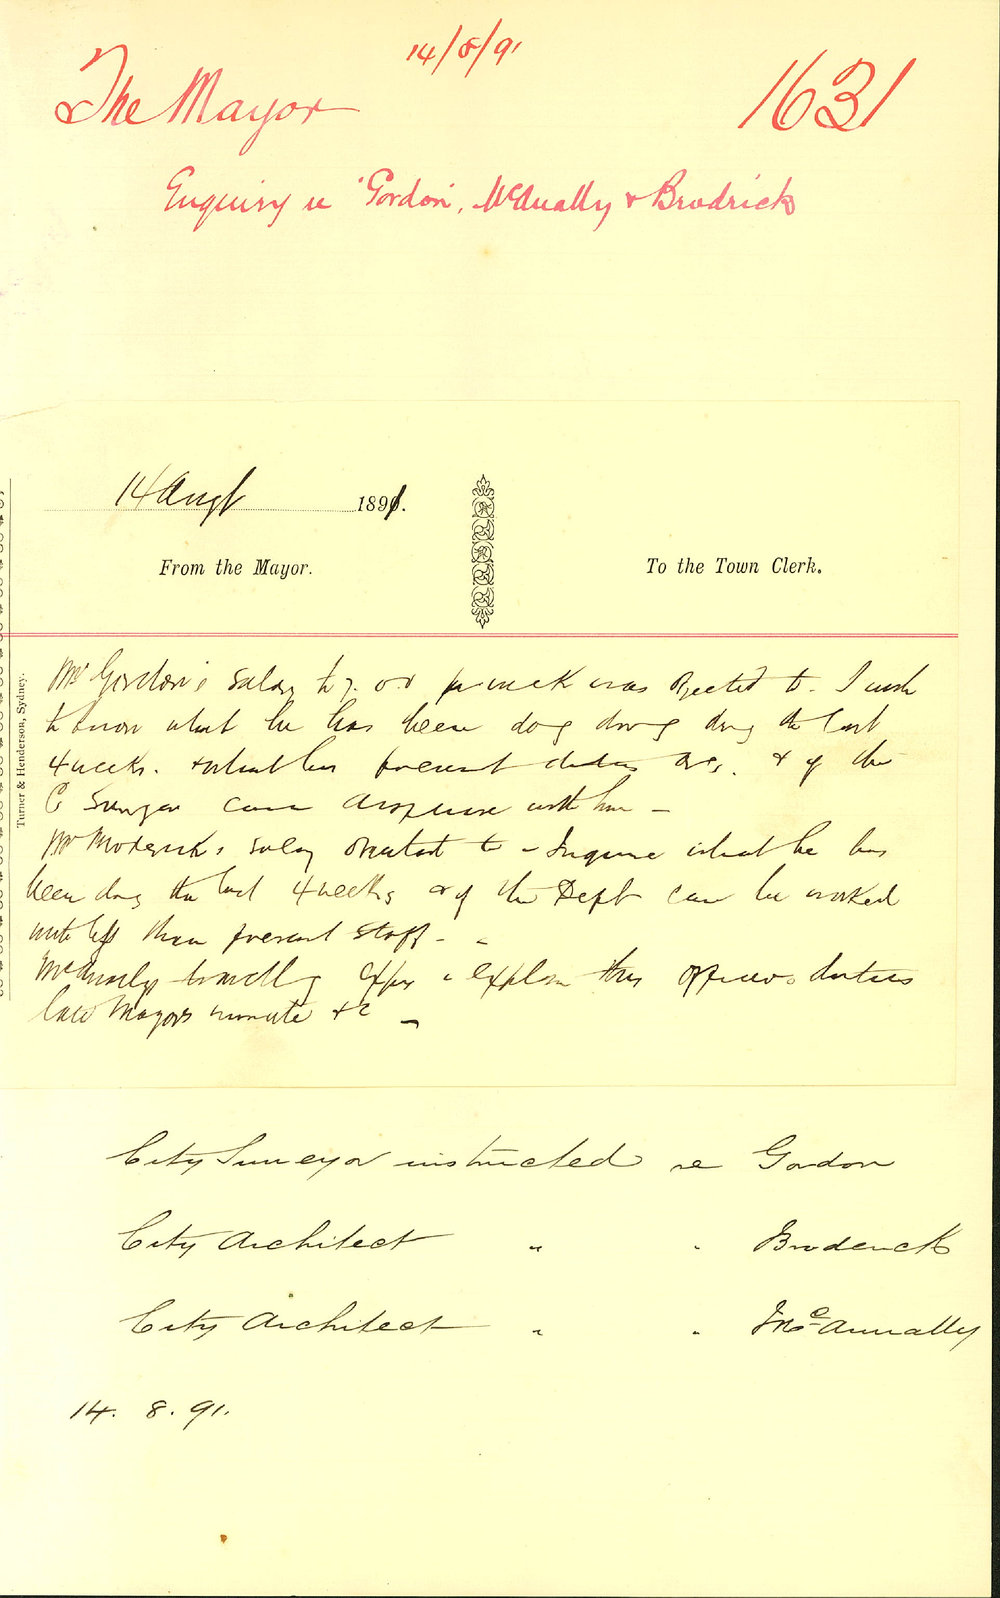 14/8/91
The Mayor
1631
Enquiry re 'Gordon', McAnally & Brodrick
14 Augt 1891.
From the Mayor.
To the Town Clerk.
Turner & Henderson, Sydney.
Mr Gordon's salary £7.0.0 per week was objected to. I wish
to know what he has been doing during the last
4 weeks. & what his present duties are. & if the
C Surveyor can dispense with him —
Mr Broderick's salary objected to – Inquire what he has
been doing the last 4 weeks & if the Dept can be worked
with less than present staff. –
McAnally's travelling exps – explain this officers duties
late Mayors minute &c —
City Surveyor instructed re Gordon
City Architect " " Broderick
City Architect " " McAnnally
14. 8. 91.